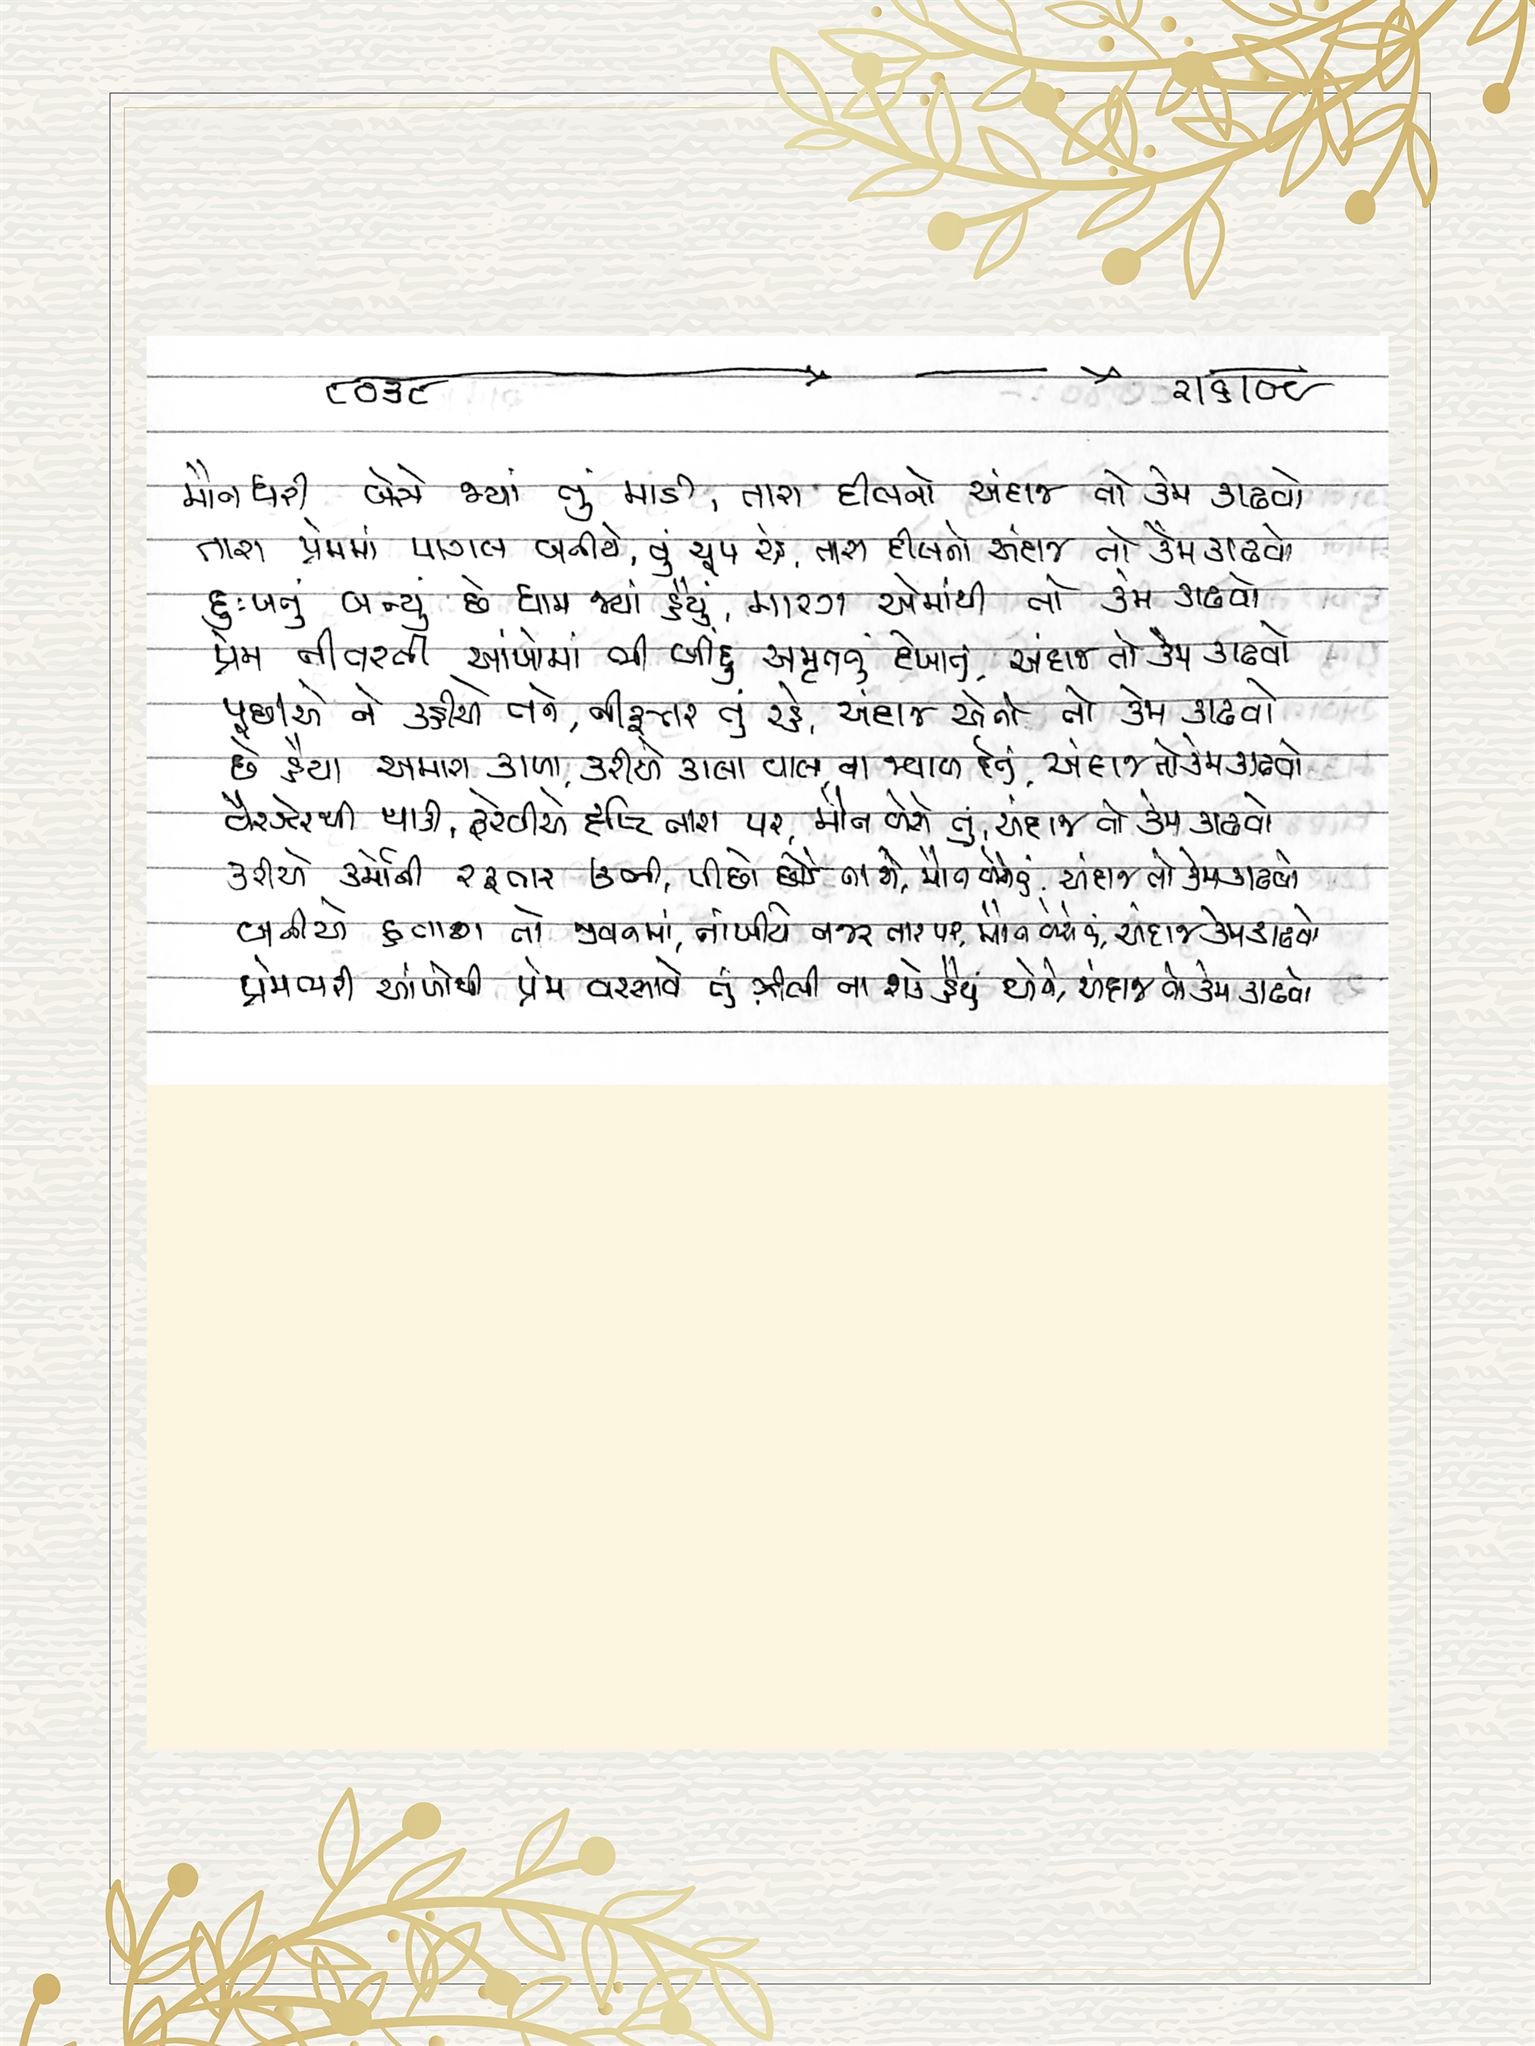 ૮૦૩૮ ૨।૬।૦૮
મૌન ધરી બેસે જ્યાં તું માડી, તારા દીલનો અંદાજ તો કેમ કાઢવો
તારા પ્રેમમાં પાગલ બનીયે, તું ચૂપ રહે, તારા દીલનો અંદાજ તો કેમ કાઢવો
દુઃખનું બન્યું છે ધામ જ્યાં હૈયું, મારગ એમાંથી તો કેમ કાઢવો
પ્રેમ નીતરતી આંખોમાં બી બીંદુ અમૃતનું દેખાનું, અંદાજ તો કેમ કાઢવો
પૂછીએ ને કહીયે તને, નીરૂત્તર તું રહે, અંદાજ એનો તો કેમ કાઢવો
છે હૈયા અમારા કાળા, કરીએ કાલા વાલા, ના જવાબ દેતું, અંદાજ તો કેમ કાઢવો
વૈરઝેરથી થાકી, ફેરવીએ દૃષ્ટિ તારા પર, મૌન બેસે તું, અંદાજ તો કેમ કાઢવો
કરીએ કર્મોની રફતાર ઉની, પીછો છોડે ના એ, મૌન બેસે તું, અંદાજ તો કેમ કાઢવો
બનીએ હતાશા તો જીવનમાં, નાંખીયે નજર તારા પર, મૌન બેસે તું, અંદાજ કેમ કાઢવો
પ્રેમભરી આંખોથી પ્રેમ વરસાવે તું ઝીલી ના શકે હૈયું એને, અંદાજ તો કેમ કાઢવો